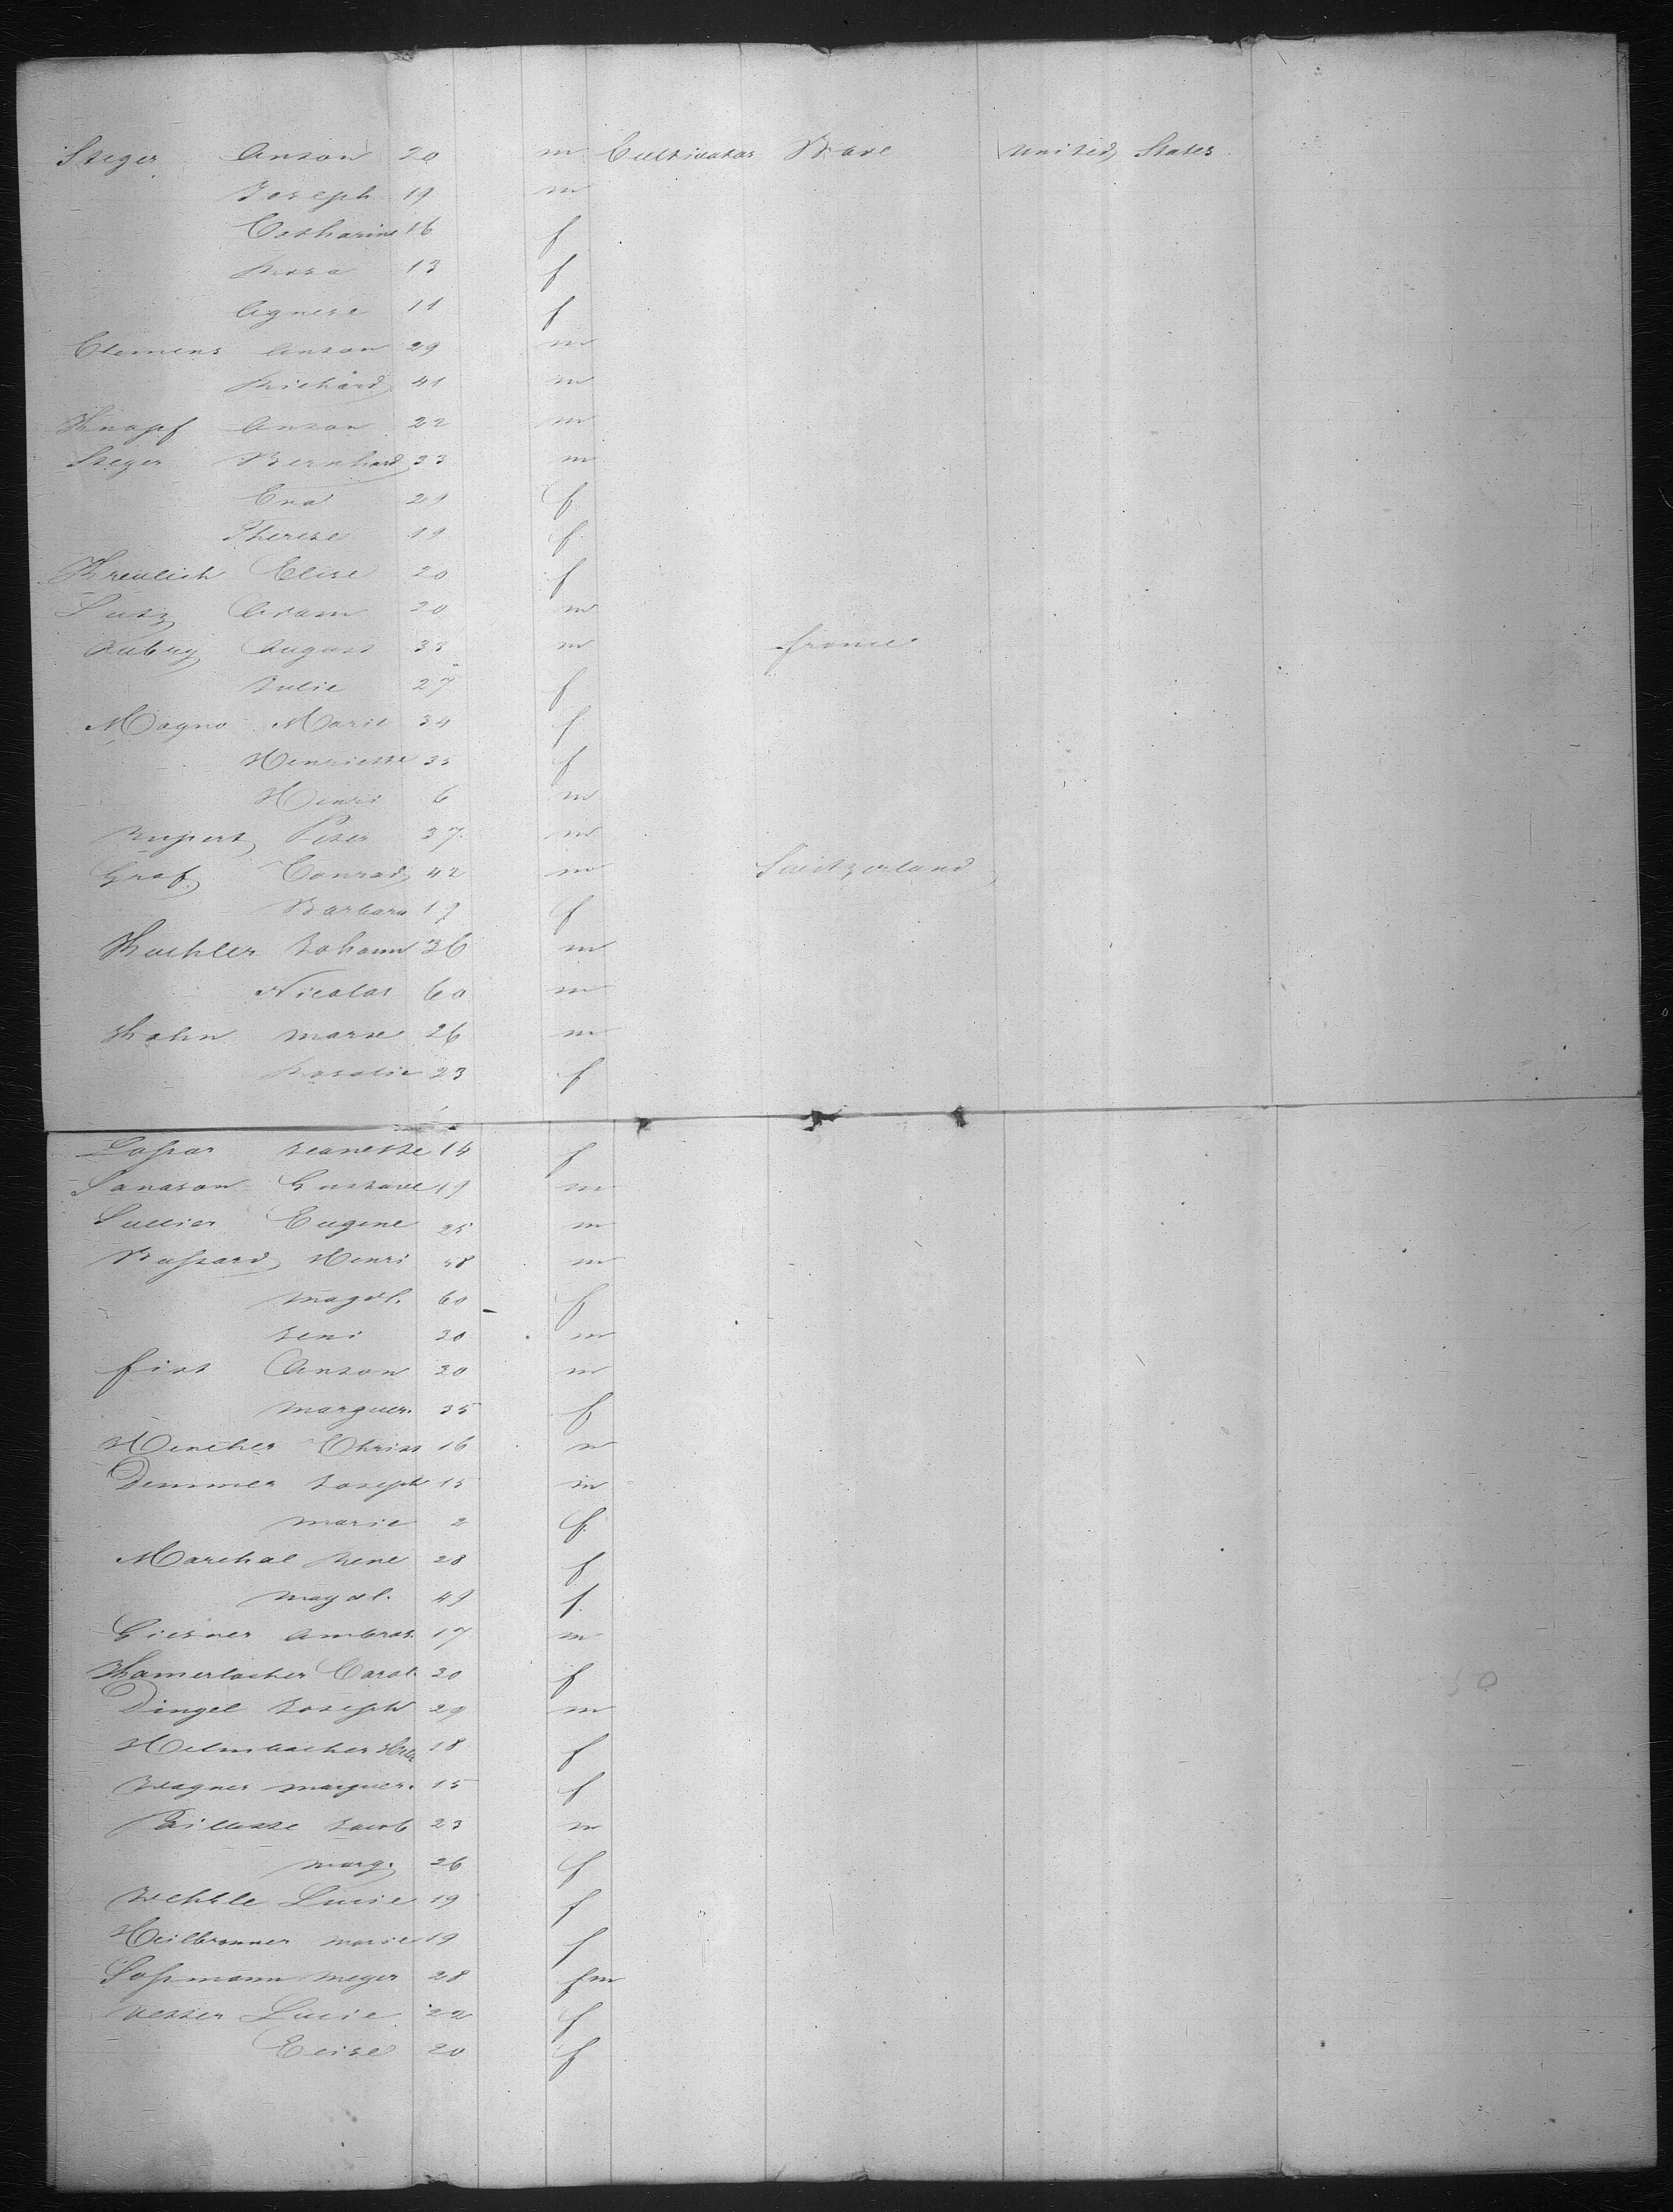 Steger Anton 20 m Cultivator Bave United States
Joseph 19 m
Catharine 16 f
Rosa 13 f
Agnese 11 f
Clemens Anton 29 m
Richard 41 m
Knopf Anton 22 m
Steger Bernhard 33 m
Eva 29 f
Therese 19 f
Kreulich Elise 20 f
Lutz Adam 20 m
August 33 m france
Julie 27 f
Magno Marie 34 f
Henriette 35 f
Henri 6 m
Rupert Peter 37 m
Graf Conrad 42 m Switzerland
Barbara 19 f
Kuchler Johann 36 m
Nicolas 60 m
Kahn Marx 26 m
Rosalie 23 f
Jeanette 14 f
Sanason Gustave 19 m
Sullier Eugene 25 m
Henri 58 m
Magdl. 60 f
30 m
first Anton 30 m
Marguer. 35 f
Hencher Christ 16 m
Demmer Joseph 15 m
Marie 2 f
Marchal Rene 28 f
Magdl. 49 f
Giesner Ambros. 17 m
Kamerlocher Carol. 30 f
Dingel Joseph 29 m
Helmbacher 18 f
Wagner Marguer. 15 f
Jacob 23 m
Marg. 26 f
Lucie 19 f
Heilbronner Marie 19 f
Meyer 28 fm
Vetter Lucie 22 f
Elise 20 f
50